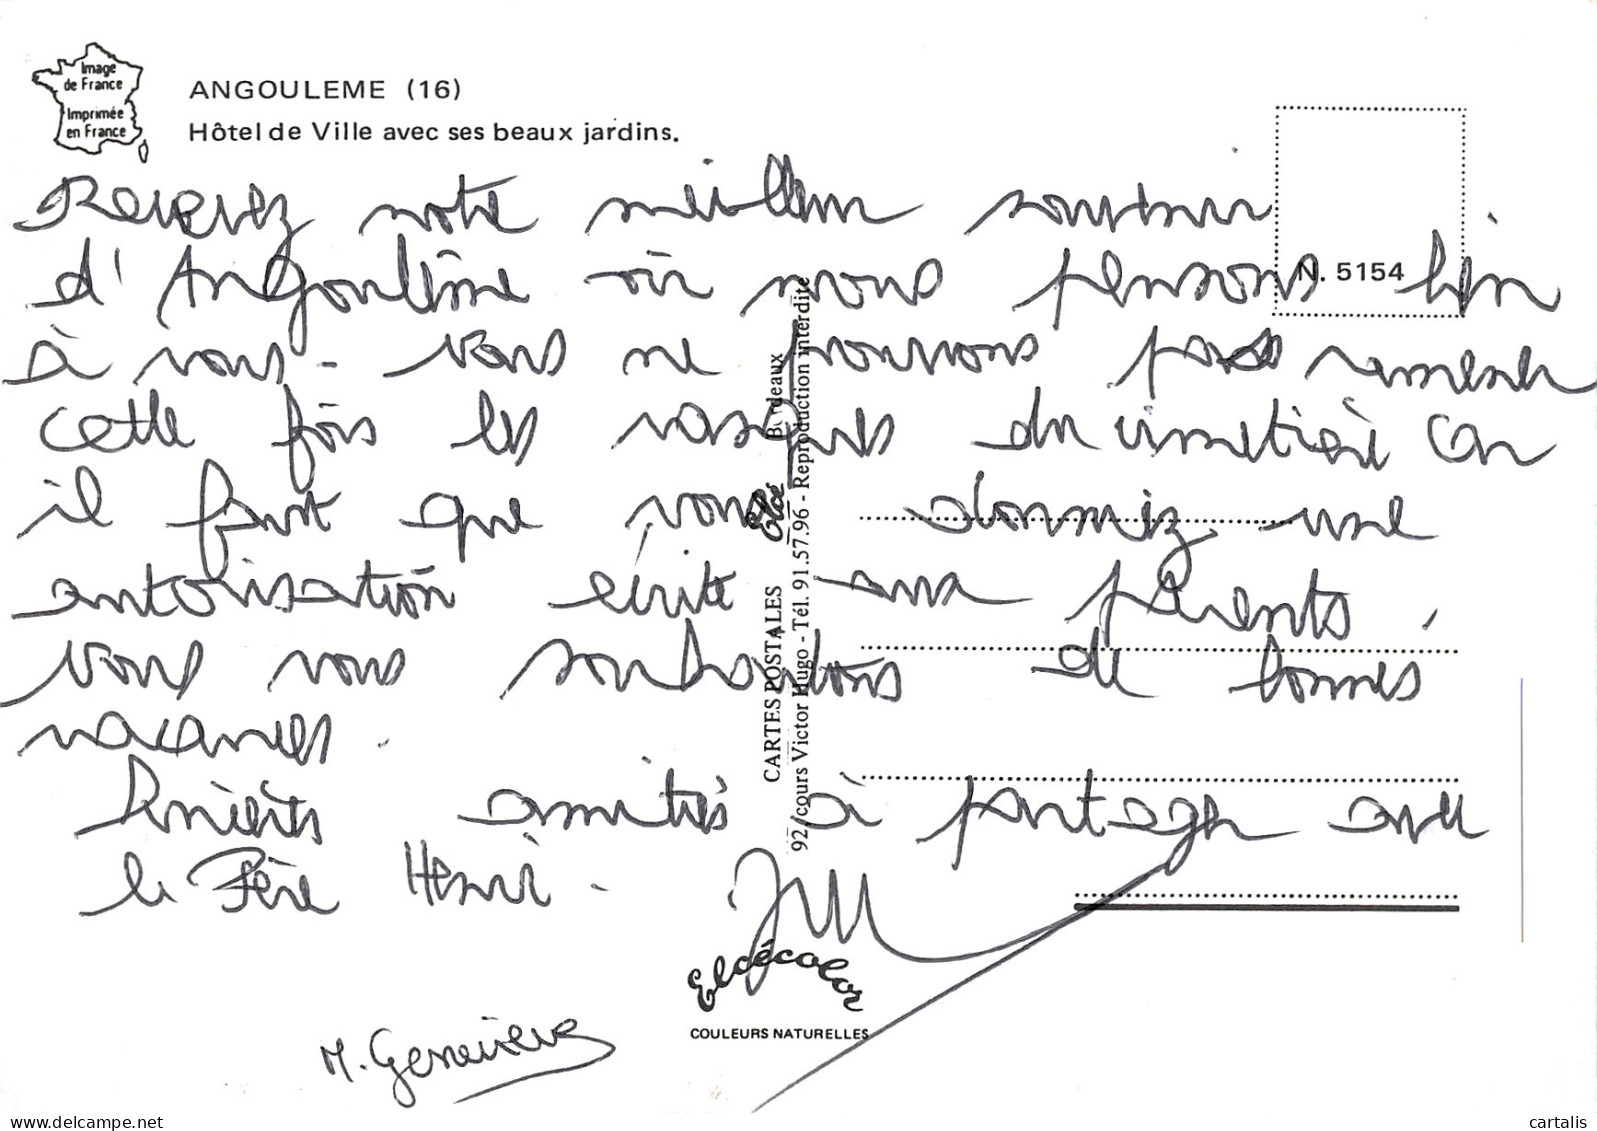 Image
de France
Imprimée
en France
ANGOULEME (16)
Hôtel de Ville avec ses beaux jardins.
N. 5154
Recevez note meilleur souvenir
d'Angoulême où nous pensons bien
à vous - Nous ne pouvons pas ramener
cette fois les vasques du cimetière Car
il faut que vous donniez une
autorisation écrite aux parents.
Nous vous souhaitons de bonnes
vacances.
amitiés à partager avec
le Père Henri -
M. Geneviève
CARTES POSTALES Elcé
92, cours Victor Hugo - Tél. 91.57.96 - Reproduction interdite
Elcécolor
COULEURS NATURELLES
cartalis